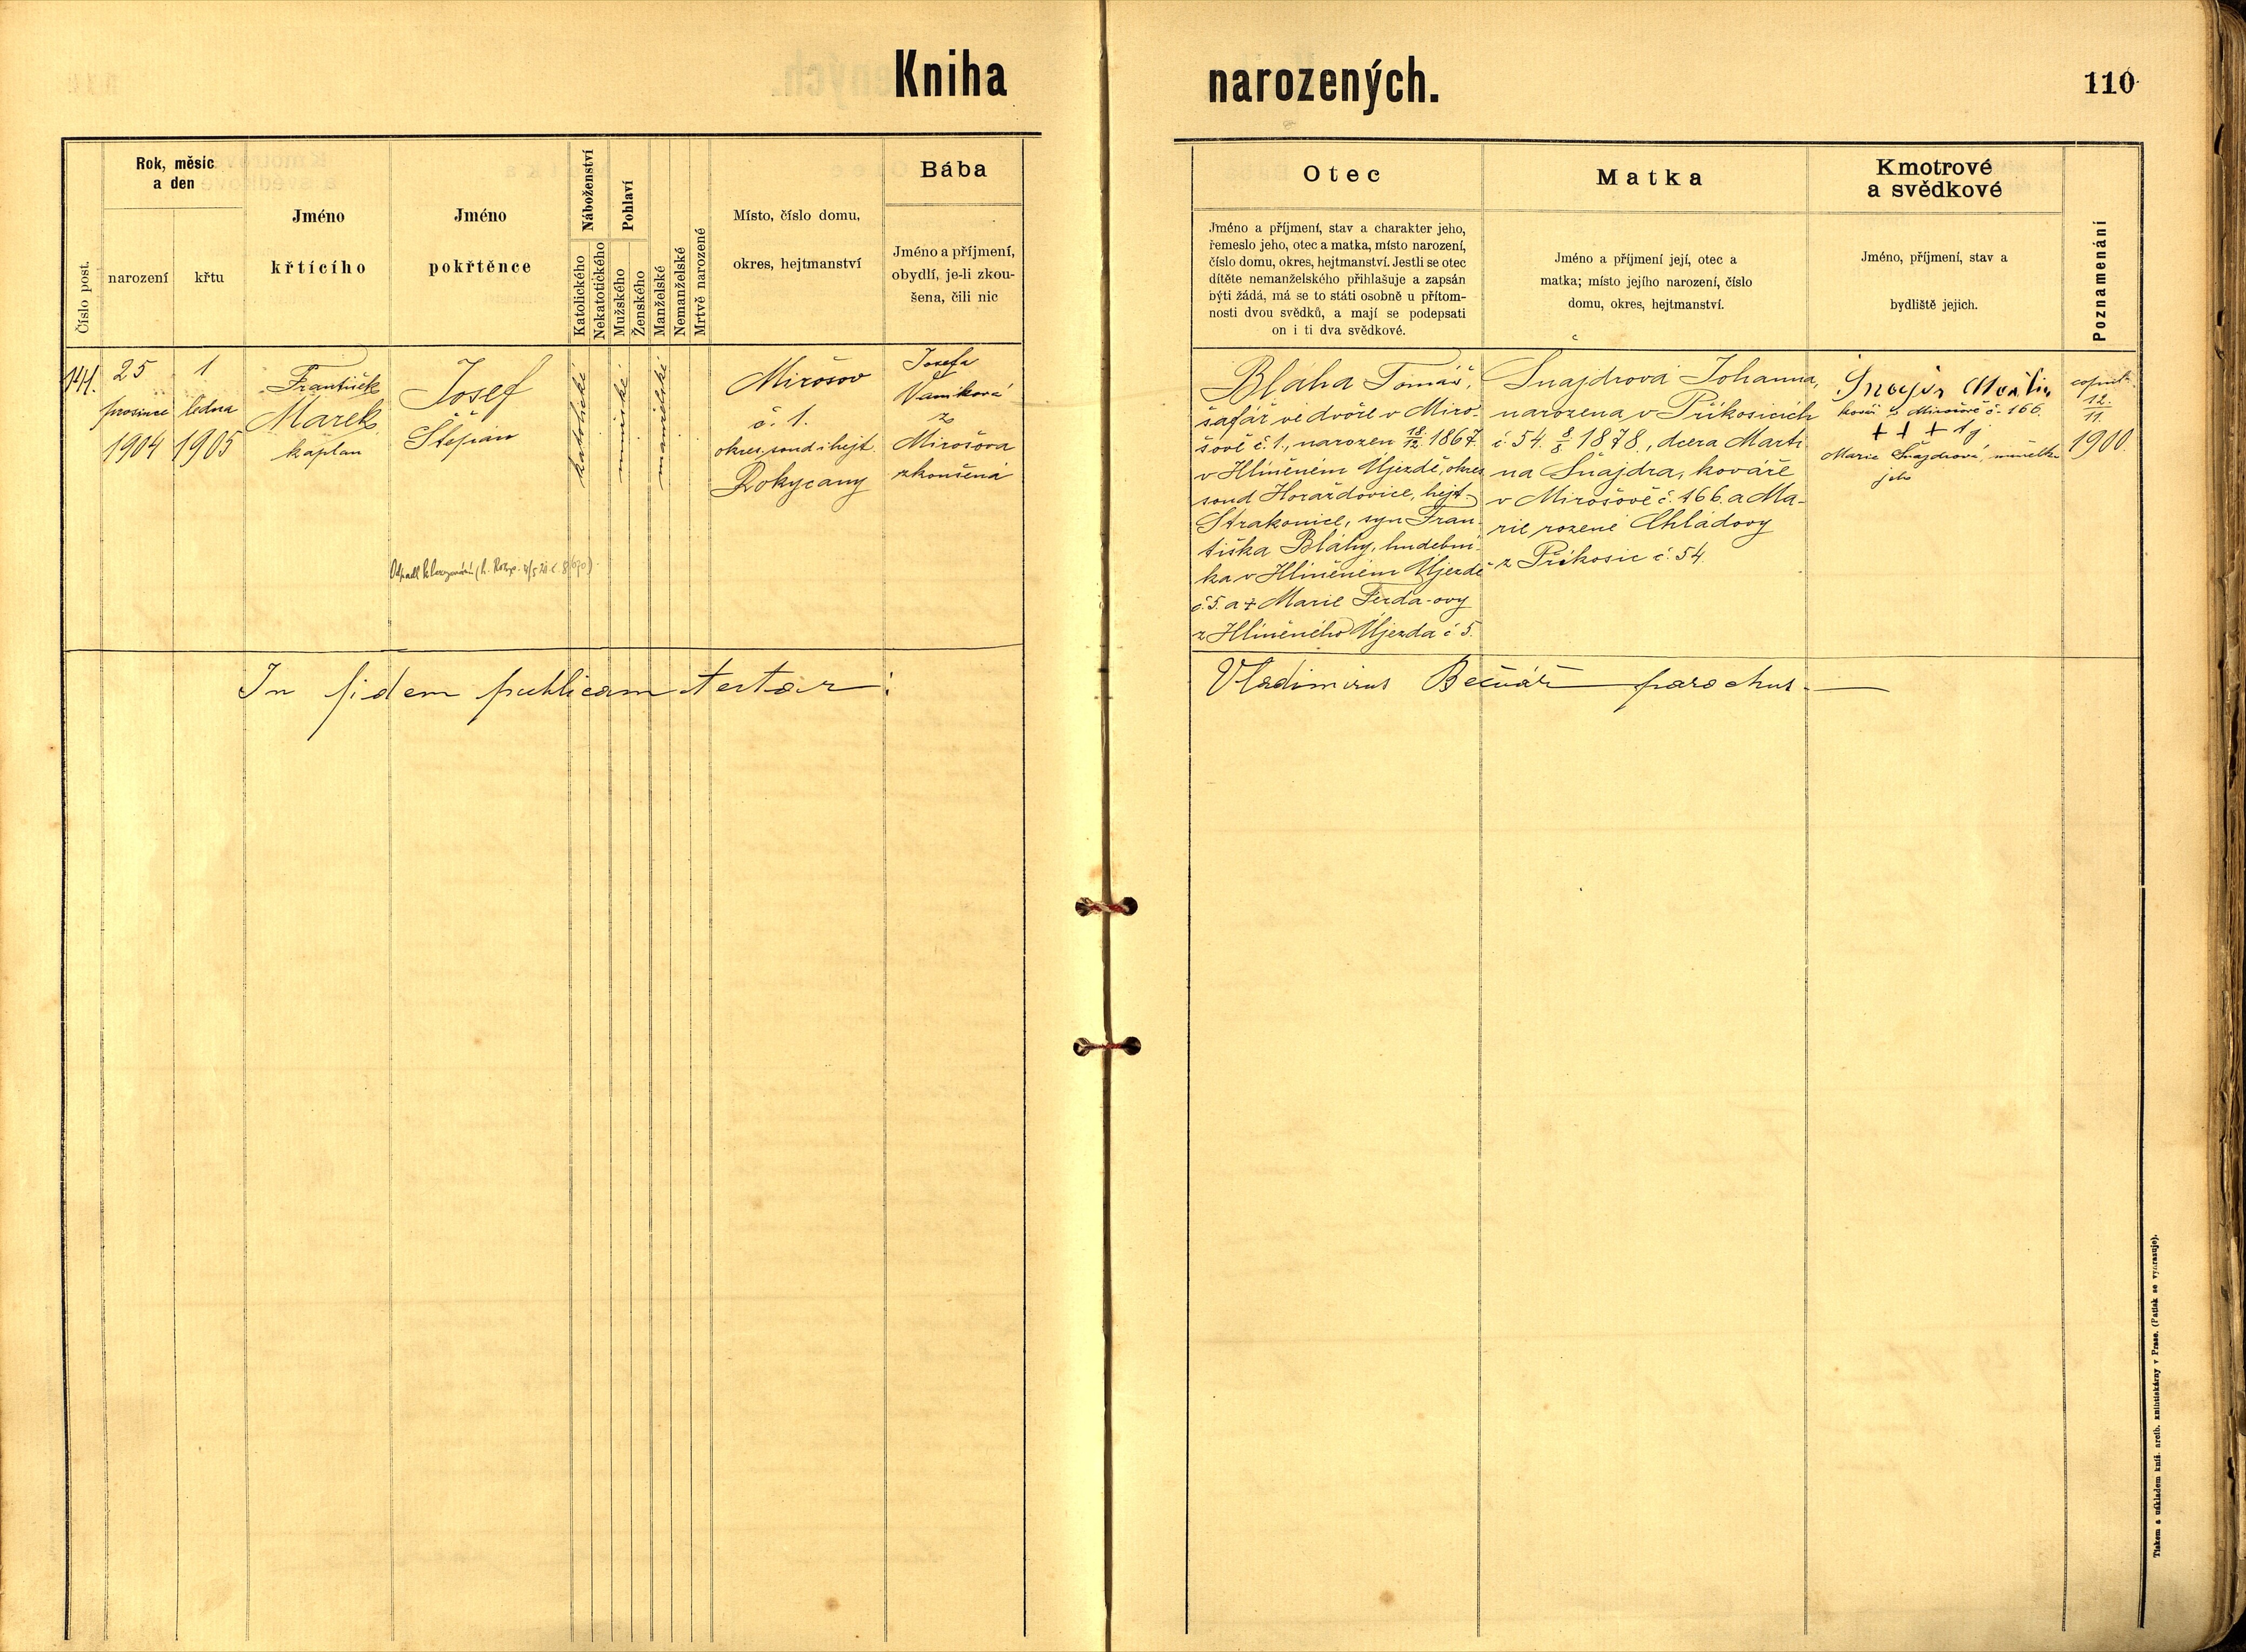 Kniha narozených.
110
Číslo post.
Rok, měsíc
a den
narození
křtu
Jméno
křtícího
Jméno
pokřtěnce
Náboženství
Katolického
Nekatolického
Pohlaví
Mužského
Ženského
Manželské
Nemanželské
Mrtvě narozené
Místo, číslo domu,
okres, hejtmanství
Bába
Jméno a příjmení,
obydlí, je-li zkou-
šena, čili nic
Otec
Jméno a příjmení, stav a charakter jeho,
řemeslo jeho, otec a matka, místo narození,
číslo domu, okres, hejtmanství. Jestli se otec
dítěte nemanželského přihlašuje a zapsán
býti žádá, má se to státi osobně u přítom-
nosti dvou svědků, a mají se podepsati
on i ti dva svědkové.
Matka
Jméno a příjmení její, otec a
matka; místo jejího narození, číslo
domu, okres, hejtmanství.
Kmotrové
a svědkové
Jméno, příjmení, stav a
bydliště jejich.
Poznamenání
141.
25
prosince
1904
1
ledna
1905
František
Marek
kaplan
Josef
Štěpán
katolické
mužské
manželské
Mirošov
č. 1.
okres. soud i hejt.
Rokycany
Josefa
Vaníková
z
Mirošova
zkoušená
Odpadl k bezvyznání
Bláha Tomáš,
šafář ve dvoře v Miro-
šově č. 1., narozen 18/12. 1867.
v Hliněném Újezdě, okres
soud Horažďovice, hejt.
Strakonice, syn Fran-
tiška Bláhy, hudební-
ka v Hliněném Újezdě
č. 5. a + Marie Ferda-ovy
z Hliněného Újezda č 5.
Šnajdrová Johanna,
narozena v Příkosicích
č. 54. 8/8 1878, dcera Marti
na Šnajdra, kováře
v Mirošově č. 166. a Ma-
rie rozené Chládovy
z Příkosic č. 54.
Šnajdr Martin
kovář v Mirošově č. 166.
+ + +
Marie Šnajdrová, manželka
jeho
copul.
12.
11.
1900.
In fidem publicam testor:
Vladimirus Bečvář parochus.
Tiskem a nákladem kníž. arcib. knihtiskárny v Praze. (Patisk se vyhrazuje).